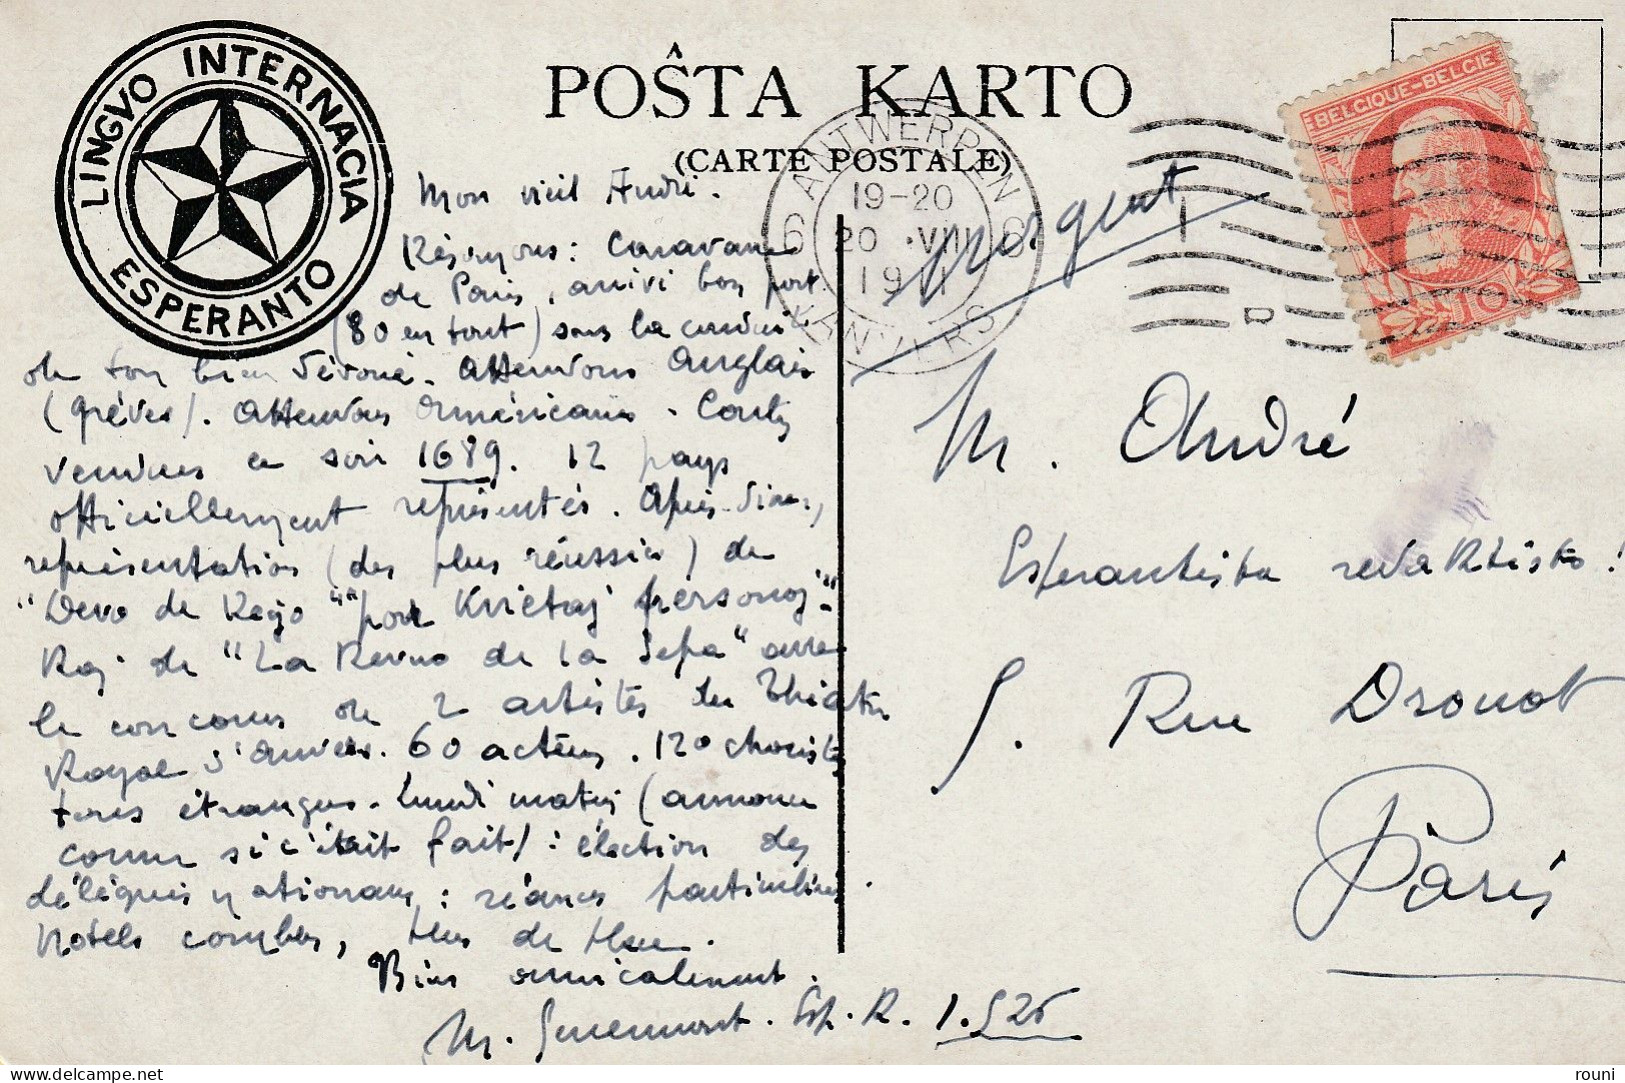 LINGVO INTERNACIA
ESPERANTO
POŜTA KARTO
(CARTE POSTALE)
BELGIQUE-BELGIE
10
ANTWERPEN
6 6
19-20
20 VIII
1911
ANVERS
Urgent
Mon vieil André.
Résumons: Caravane
de Paris, arrivé bon port.
(80 en tout) sous la conduite
de ton bien dévoué. Attendons Anglais
(grèves). Attendons Américains.
venus ce soir 1689. 12 pays
officiellement représentés. Après-diner,
représentation (des plus réussies) de
"Devo de Reĝo" "por Kvietaj personoj".
Kaj de "La Revuo de la Sepa" avec
le concours de 2 artistes du Théâtre
Royal d'Anvers. 60 acteurs. 120 choristes
tous étrangers. Lundi matin (annonce
comme si c'était fait): élection des
délégués nationaux: séances particulières.
Hotels combles, plus de place.
Bien amicalement.
M. Esp. R. 1.526
M. André
Esperantista redaktisto!
5. Rue Drouot
Paris
www.delcampe.net
rouni